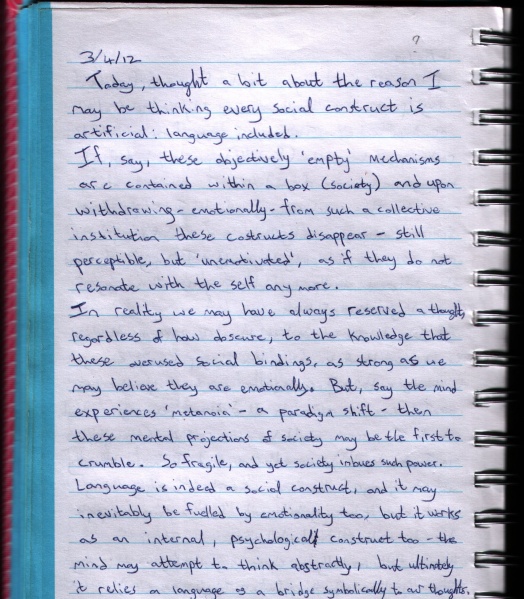 ?
3/4/12
Today, thought a bit about the reason I
may be thinking every social construct is
artificial: language included.
If, say, these objectively 'empty' mechanisms
are contained within a box (society) and upon
withdrawing - emotionally - from such a collective
institution these costructs disappear - still
perceptible, but 'unmotivated', as if they do not
resonate with the self any more.
In reality we may have always reserved a thought,
regardless of how obscure, to the knowledge that
these overused social bindings, as strong as we
may believe they are emotionally. But, say the mind
experiences 'metanoia' - a paradigm shift - then
these mental projections of society may be the first to
crumble. So fragile, and yet society imbues such power.
Language is indeed a social construct, and it may
inevitably be fuelled by emotionality too, but it works
as an internal, psychological construct too - the
mind may attempt to think abstractly, but ultimately
it relies on language as a bridge symbolically to our thoughts.